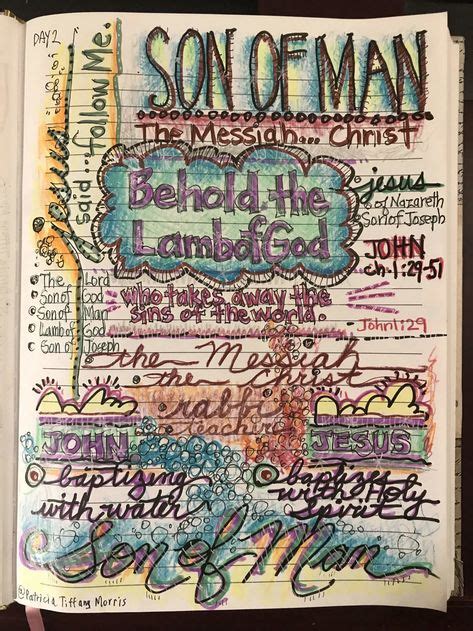 DAY 2
SON OF MAN
The Messiah... Christ
jesus said... follow Me.
Behold the
Lamb of God
jesus
of Nazareth
Son of Joseph
JOHN
ch. 1:29-51
who takes away the
sins of the world.
John 1:29
The Lord
Son of God
Son of Man
Lamb of God
Son of Joseph
the Messiah
the Christ
rabbi
teacher
JOHN
JESUS
baptizing
with water
baptizes
with Holy
Spirit
Son of Man
@Patricia Tiffany Morris